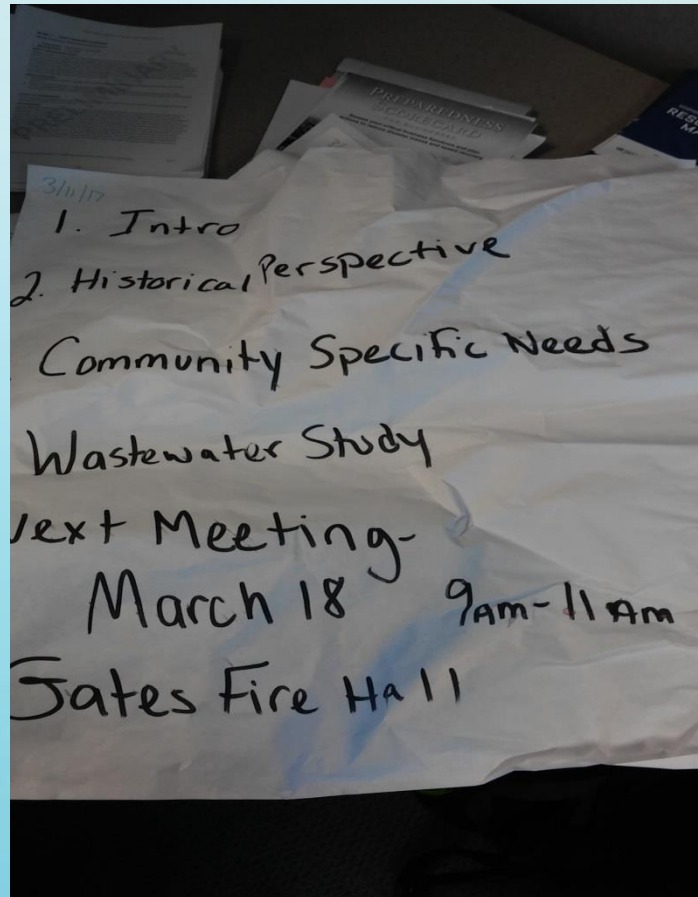 PREPAREDNESS
SCORECARD
3/11/17
1. Intro
2. Historical Perspective
Community Specific Needs
Wastewater Study
ext Meeting-
March 18 9AM-11 AM
Gates Fire Hall